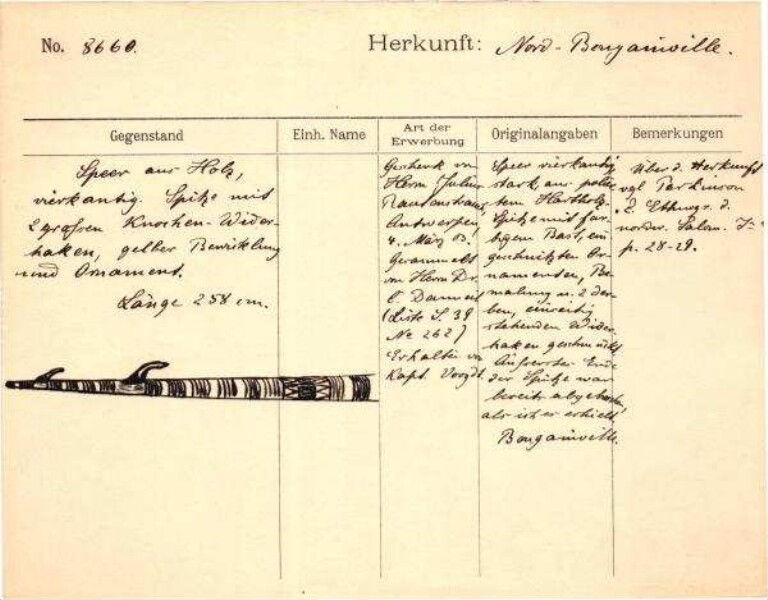 No. 8660. Herkunft: Nord-Bougainville.
Gegenstand
Einh. Name
Art der
Erwerbung
Originalangaben
Bemerkungen
Speer aus Holz,
vierkantig. Spitze mit
2 großen Knochen-Wider-
haken, gelber Bewicklung
und Ornament.
Länge 258 cm.
Geschenk von
Herrn Julius
Rautenstrauch,
Antwerpen,
4. März 03.
Gesammelt
von Herrn Dr.
(Liste S. 39
No 262)
Erhalten von
Kapt. Voogdt.
Speer vierkantig,
stark, aus polier-
tem Hartholz.
Spitze mit far-
bigem Bast, ein-
geschnitzten Or-
namenten, Be-
malung u. 2 der-
ben, einseitig
stehenden Wider-
haken geschmückt,
Äußerster Ende
der Spitze war
bereits abgebrochen,
als ich er erhielt.
Bougainville.
Über d. Herkunft
vgl Parkinson
Z. Ethnogr. d.
nordw. Salom. I
p. 28-29.